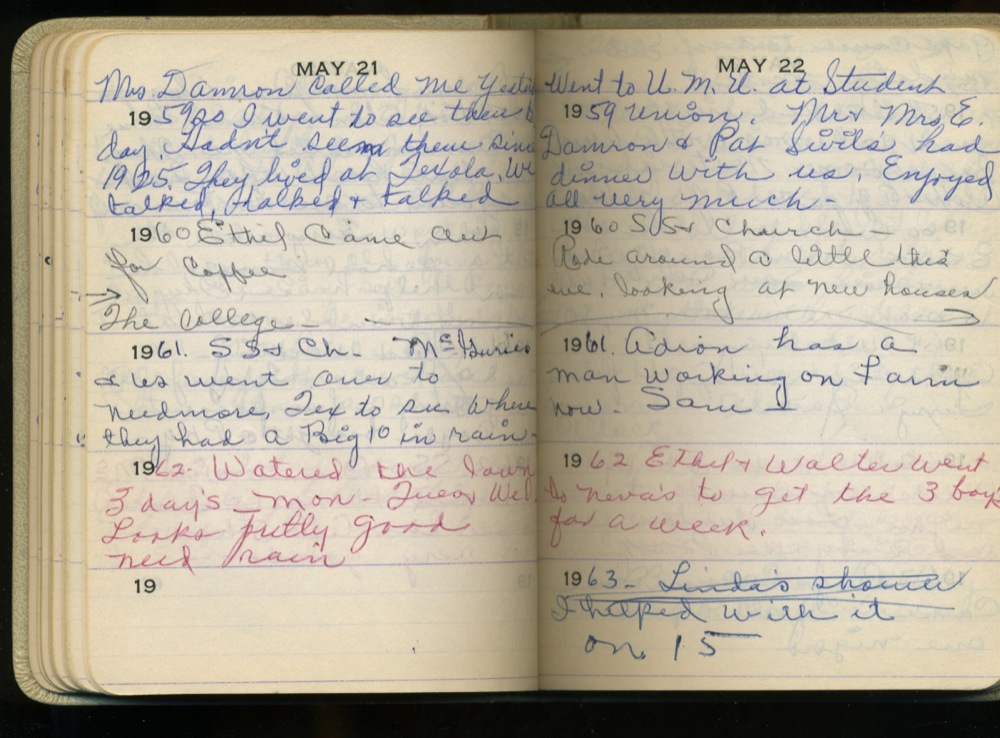 MAY 21
Mrs. Damron called me yester
1959 so I went to see them
day. Hadn't seem them since
1925. They lived at Texola, We
talked, talked & talked
1960 Ethel Came out
for coffee
→
The College -
1961. SS & Ch. McGuries
& us went over to
needmore, Tex to see where
they had a Big 10 in rain -
1962. Watered the lawn
3 day's - mon - Tues & Wed
Looks pretty good
need rain
19
MAY 22
Went to U. M. U. at Student
1959 union. Mr & Mrs E.
Damron & Pat Sivils had
dinner with us. Enjoyed
all very much -
1960 SS & Church -
Rode around a little this
eve. looking at new houses
1961. Adron has a
man working on Farm
now - Sam
1962 Ethel & Walter went
to neva's to get the 3 boys
for a week.
1963 - Linda's shower
I helped with it
on 15